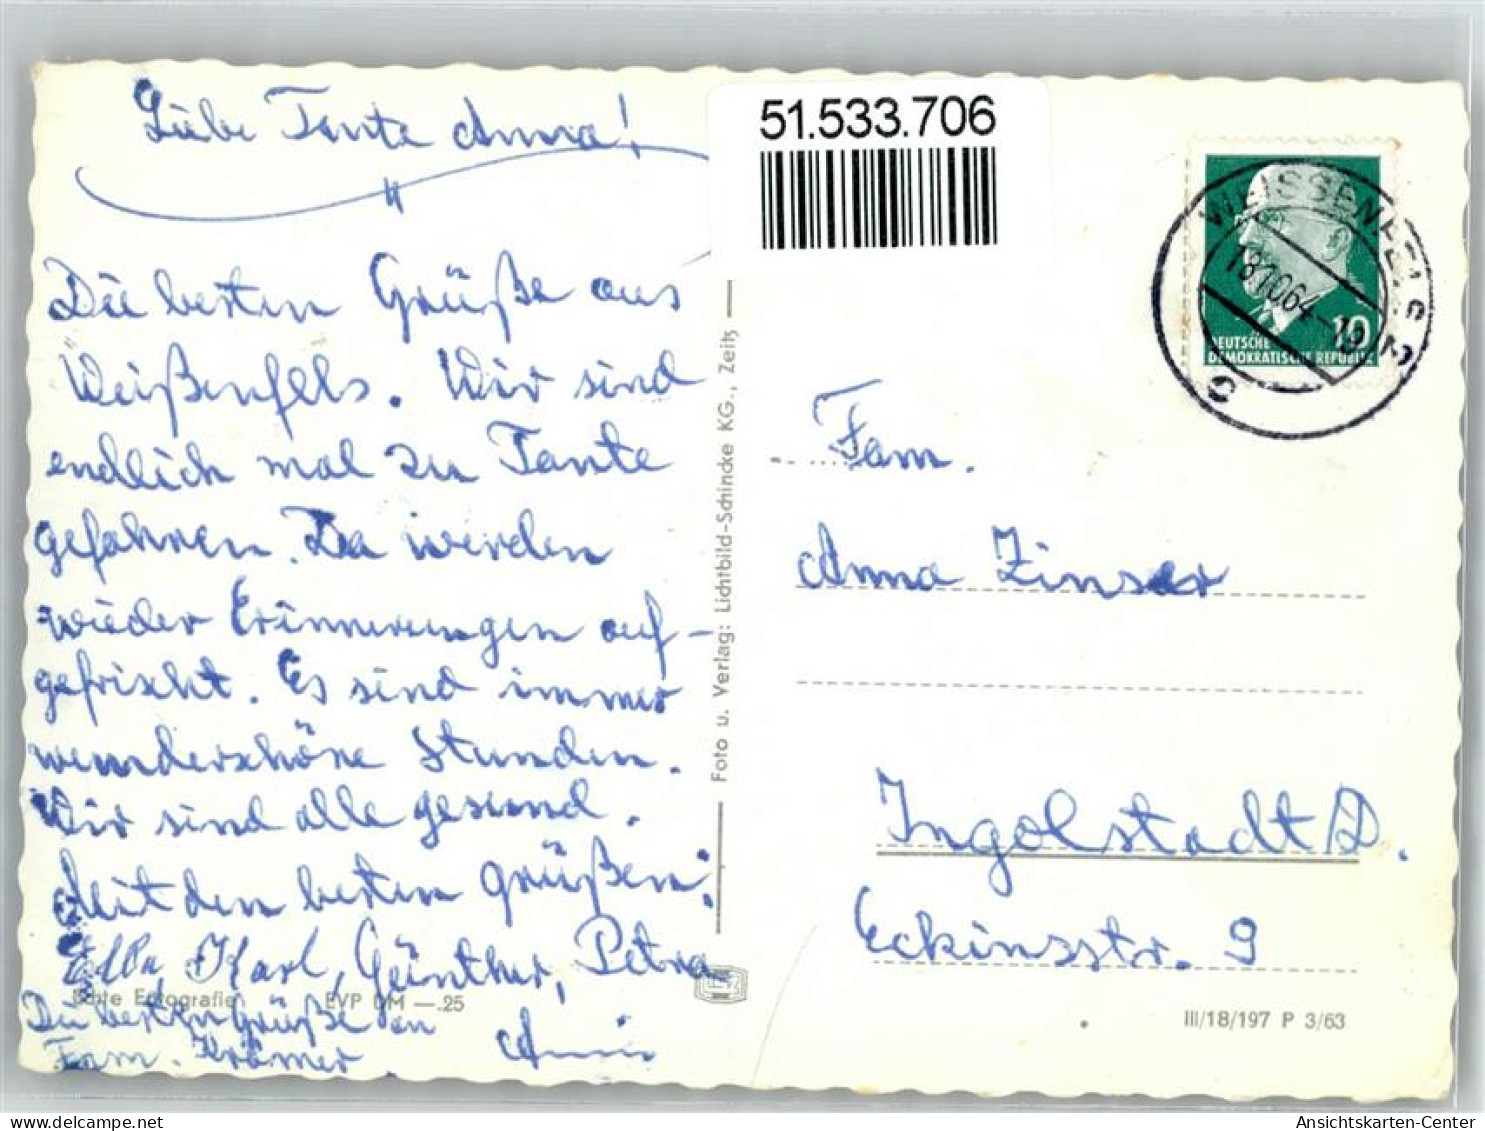 Liebe Tante Anna!
Die besten Grüße aus
Weißenfels. Wir sind
endlich mal zu Tante
gefahren. Da werden
wieder Erinnerungen auf-
gefrischt. Es sind immer
wunderschöne Stunden.
Wir sind alle gesund.
Mit den besten Grüßen:
Karl, Günther, Petra
Die besten Grüße an
Fam. Krämer
Echte Fotografie EVP DM —.25
Foto u. Verlag: Lichtbild-Schincke KG., Zeitz
51.533.706
WEISSENFELS 2
18.10.64-19
c
10
DEUTSCHE
DEMOKRATISCHE REPUBLIK
Fam.
Anna Zinser
Ingolstadt D.
Eckinsstr. 9
III/18/197 P 3/63
Ansichtskarten-Center